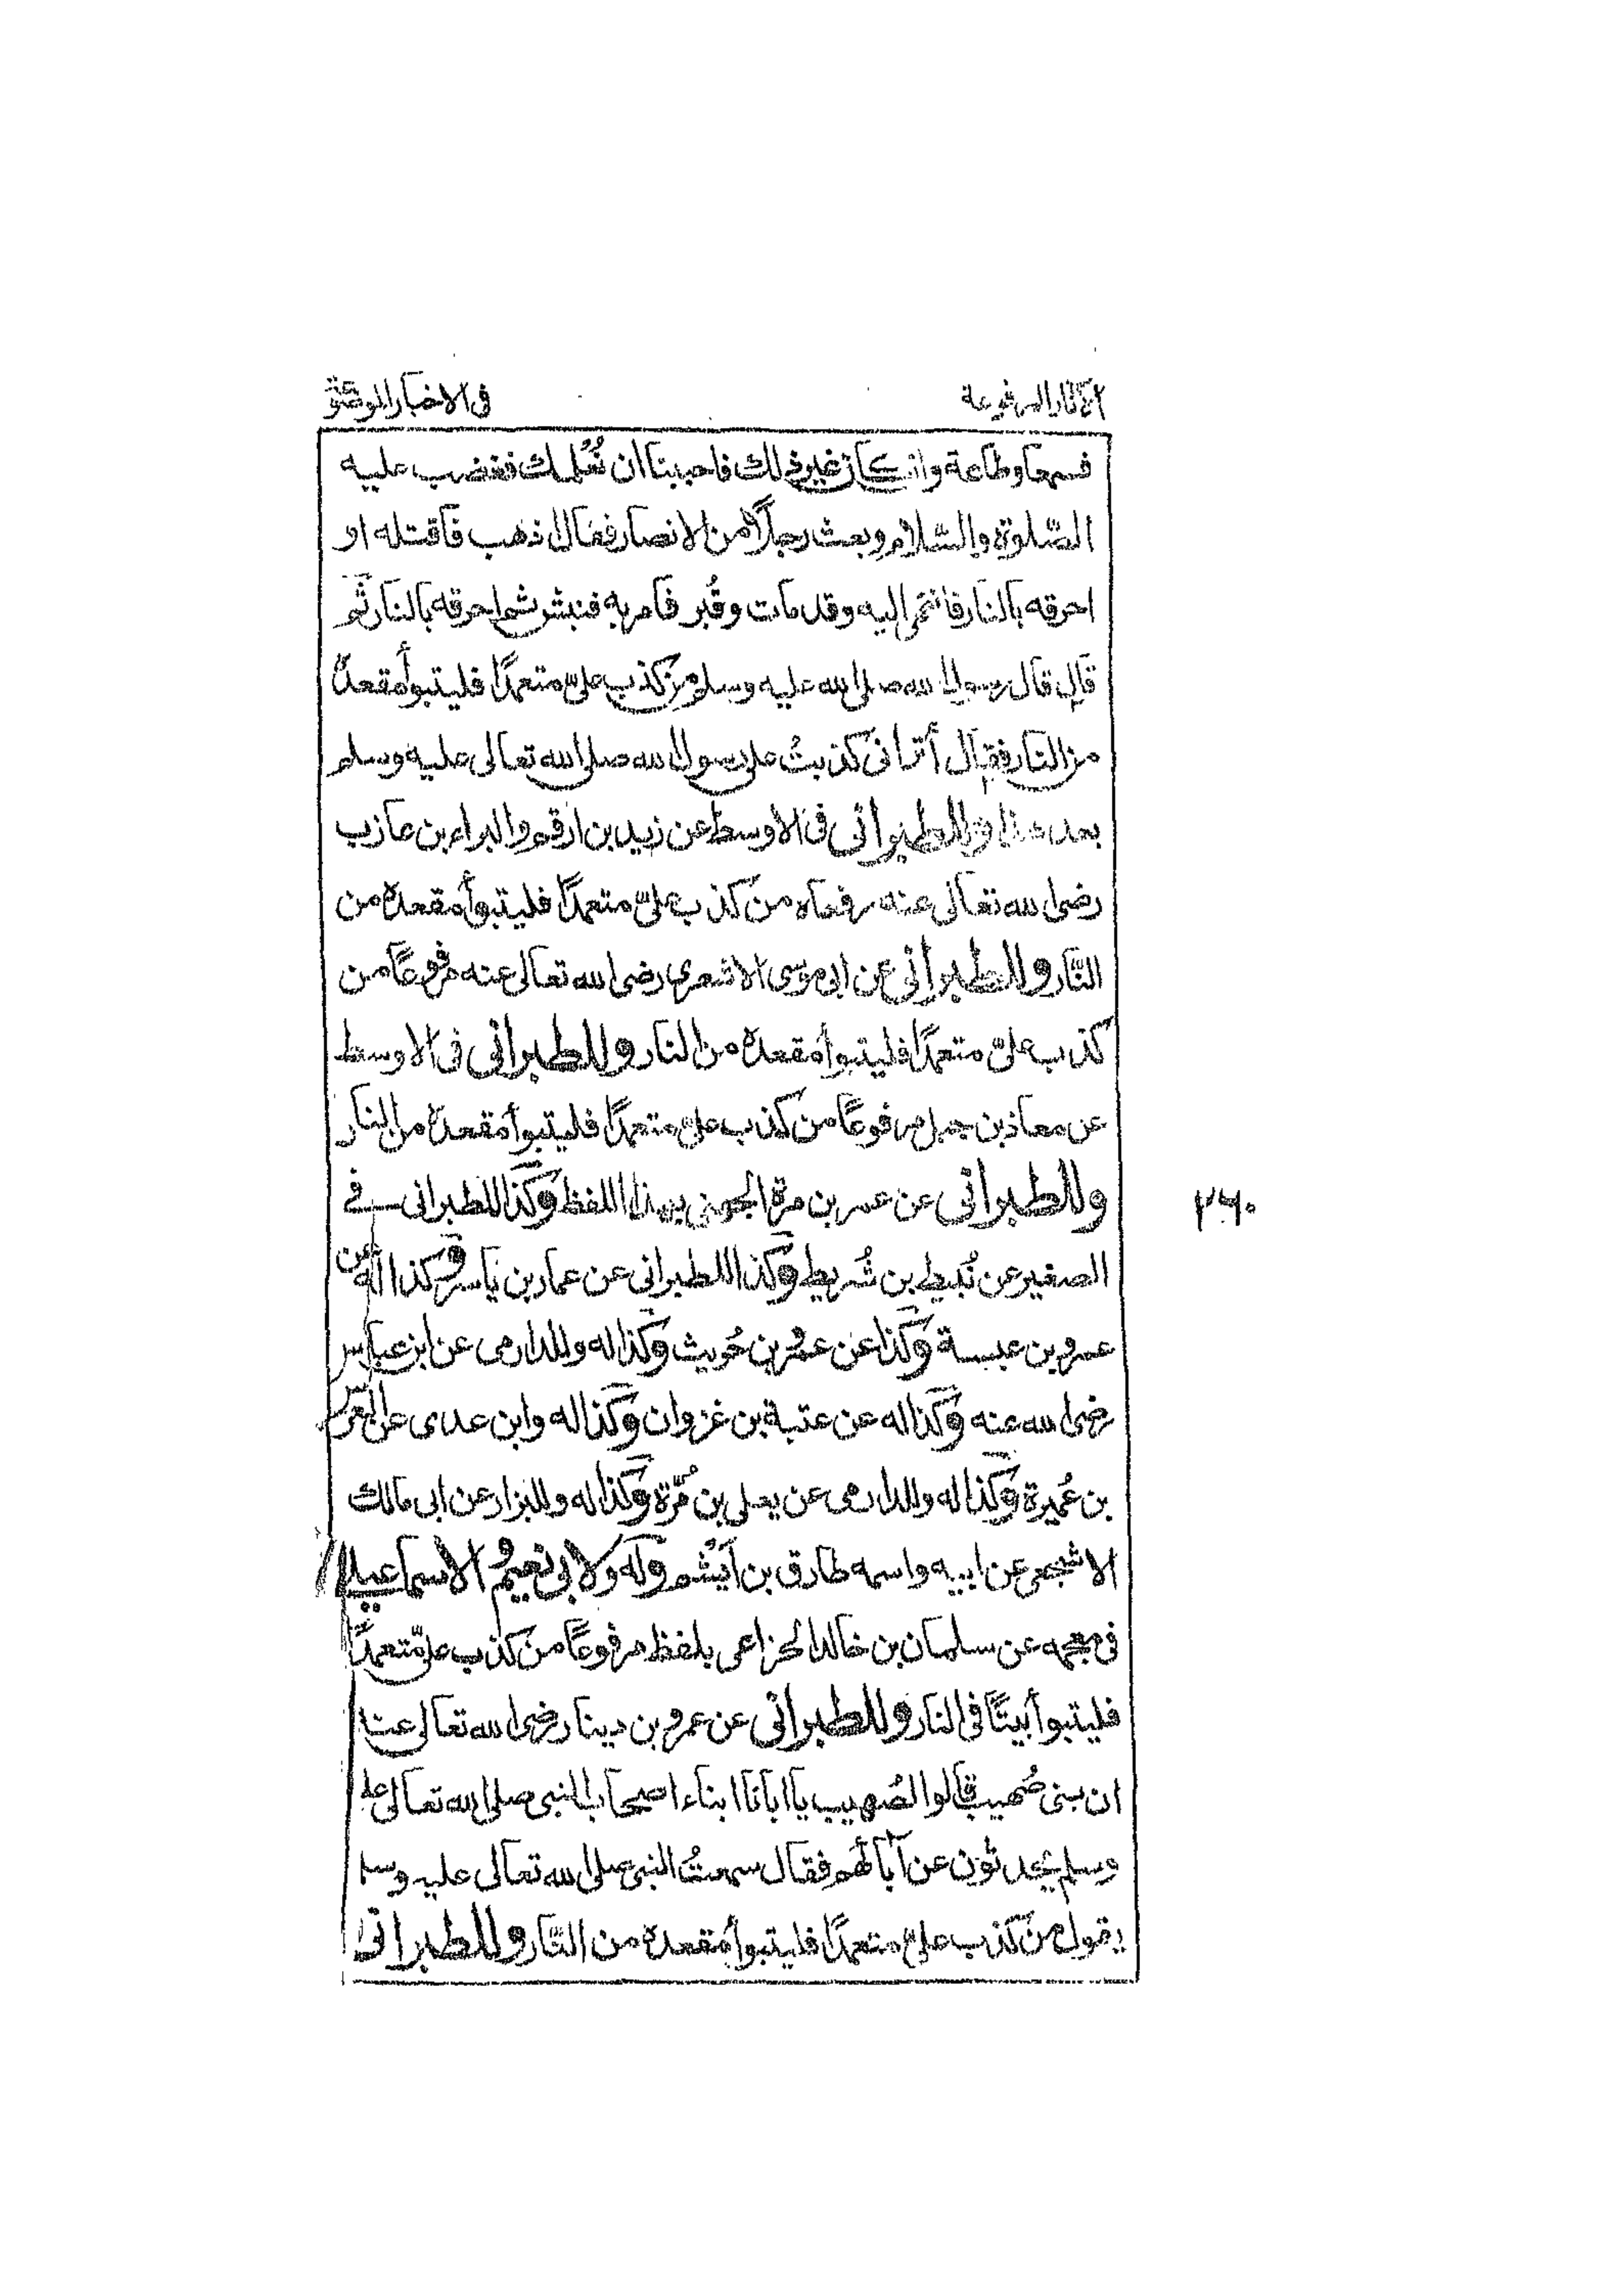 الآثار المرفوعة
فى الاخبار الموضوعة
فسمعا وطاعة وان كان غير ذلك فاحببنا ان نُعلمك فغضب عليه
الصّلوة والسّلام وبعث رجلًا من الانصار فقال اذهب فاقتله او
احرقه بالنار فانتهى اليه وقد مات وقُبر فامر به فنبش ثم احرقه بالنار ثم
قال قال رسول الله صلى الله عليه وسلم من كذب علىّ متعمدًا فليتبوأ مقعدهٗ
من النار فقال أترانى كذبتُ على رسول الله صلى الله تعالى عليه وسلم
بعد هذا وللطبرانى فى الاوسط عن زيد بن ارقم والبراء بن عازب
رضى الله تعالى عنه رفعاه من كذب علىّ متعمدًا فليتبوأ مقعده من
النّار وللطبرانى عن ابى موسى الاشعرى رضى الله تعالى عنه مرفوعًا من
كذب علىّ متعمدًا فليتبوأ مقعده من النار وللطبرانى فى الاوسط
عن معاذ بن جبل مرفوعًا من كذب علىّ متعمدًا فليتبوأ مقعده من النار
وللطبرانى عن عمر بن مرة الجهنى بهذا اللفظ وكذا للطبرانى فے
الصغير عن نُبيط بن شُريط وكذا للطبرانى عن عمار بن ياسر وكذا له عن
عمرو بن عبسة وكذا عن عمرو بن حُويث وكذا له وللدارمى عن ابن عباس
رضى الله عنه وكذا له عن عتبة بن غزوان وكذا له وابن عدى عن العرس
بن عُميرة وكذا له وللدارمى عن يعلى بن مُرّة وكذا له وللبزار عن ابى مالك
الاشجعى عن ابيه واسمه طارق بن اَيْشُم وله ولابى نعيم و الاسماعيلى
فى معجمه عن سلمان بن خالد الخزاعى بلفظ مرفوعًا من كذب علىّ متعمدًا
فليتبوأ بيتًا فى النار وللطبرانى عن عمرو بن دينار رضى الله تعالى عنا
ان بنى صُهيب قالوا لصُهيب يا ابانا ابناء اصحاب النبى صلى الله تعالى عليه
وسلم يحدثون عن آبائهم فقال سمعتُ النبى صلى الله تعالى عليه وسلم
يقول من كذب علىّ متعمدًا فليتبوأ مقعده من النّار وللطبرانى
٢٦٠